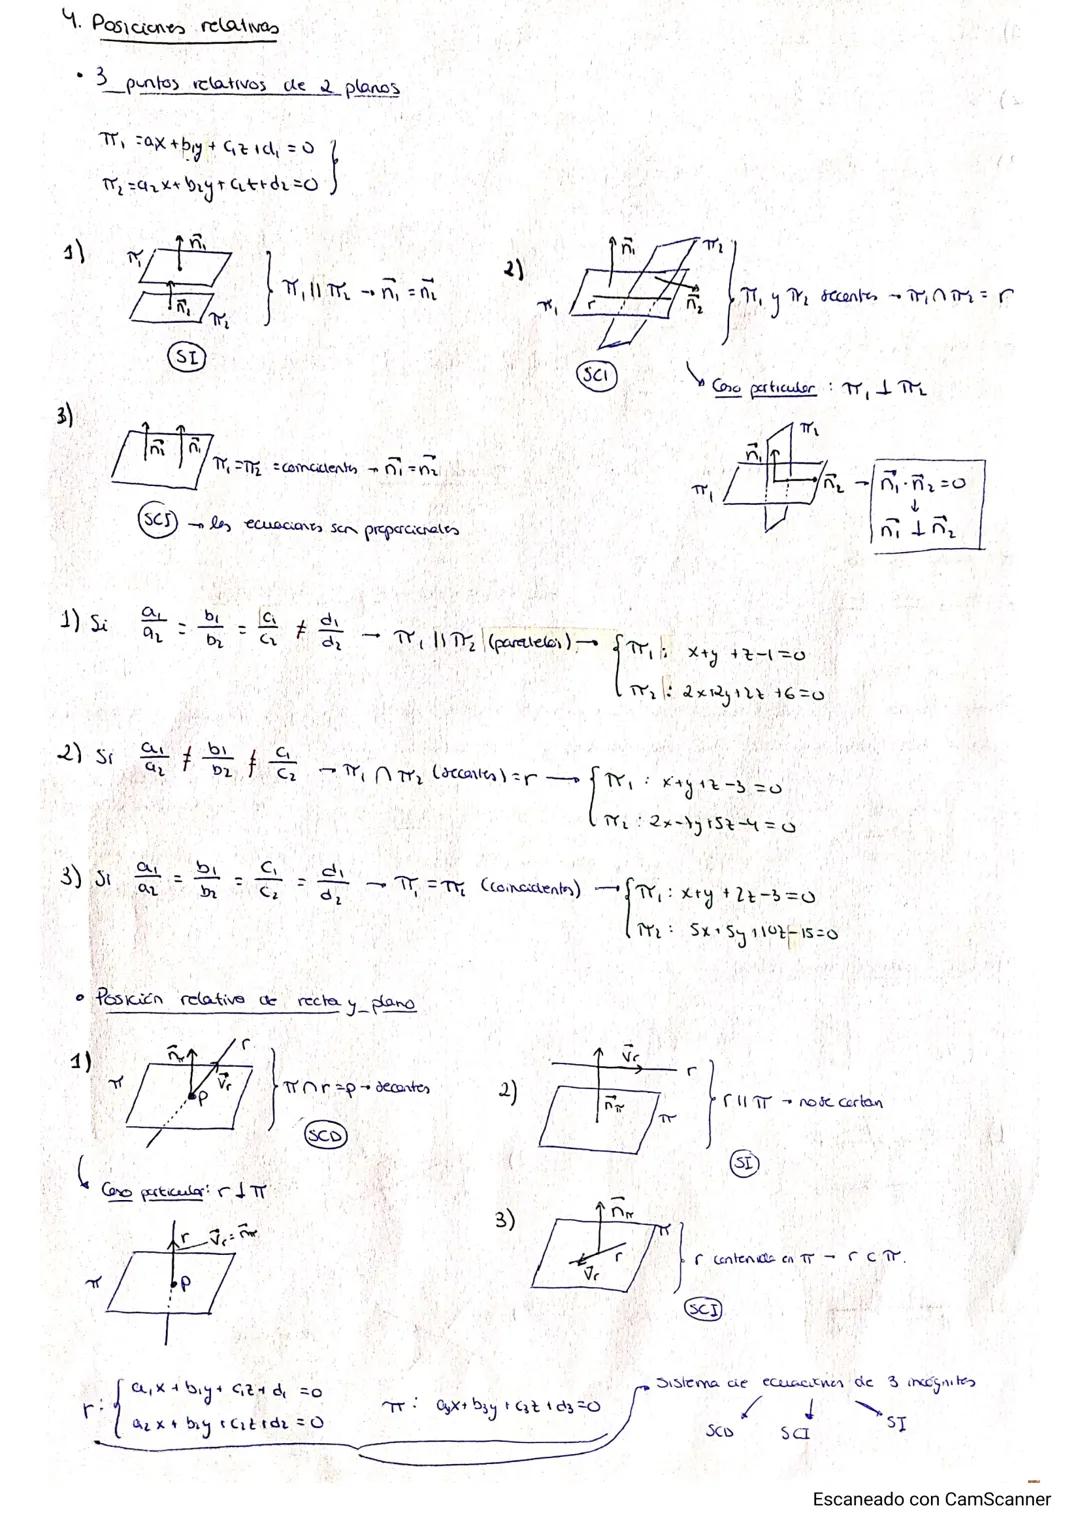 4. Posiciones relativas
• 3 puntos relativos de 2 planos
π₁ = ax + b₁y + c₁z + d₁ = 0
π₂ = a₂x + b₂y + c₂z + d₂ = 0
1) π₁ n⃗₁ n⃗₁ π₂ π₁ || π₂ → n⃗₁ = n⃗₂
SI
2) n⃗₁ π₂ π₁ r n⃗₂ π₁ y π₂ secantes → π₁ ∩ π₂ = r
SCI
Caso particular : π₁ ⊥ π₂
3) n⃗₂ n⃗₁ π₁ = π₂ = coincidentes → n⃗₁ = n⃗₂
SCI → las ecuaciones son proporcionales
π₂ n⃗₁ π₁ n⃗₂ → n⃗₁ · n⃗₂ = 0
↓
n⃗₁ ⊥ n⃗₂
1) Si a₁/a₂ = b₁/b₂ = c₁/c₂ ≠ d₁/d₂ → π₁ || π₂ (paralelos) → π₁ : x + y + z - 1 = 0
π₂ : 2x + 2y + 2z + 6 = 0
2) Si a₁/a₂ ≠ b₁/b₂ ≠ c₁/c₂ → π₁ ∩ π₂ (secantes) = r → π₁ : x + y + z - 3 = 0
π₂ : 2x - y + 5z - 4 = 0
3) Si a₁/a₂ = b₁/b₂ = c₁/c₂ = d₁/d₂ → π₁ = π₂ (coincidentes) → π₁ : x + y + 2z - 3 = 0
π₂ : 5x + 5y + 10z - 15 = 0
• Posición relativa de recta y plano
1) π n⃗π r v⃗r P π ∩ r = p → secantes
SCD
2) v⃗r r n⃗π π r || π → no se cortan
SI
Caso particular: r ⊥ π
r v⃗r = n⃗π π P
3) n⃗π π r v⃗r r contenida en π → r ⊂ π.
SCI
r: a₁x + b₁y + c₁z + d₁ = 0
a₂x + b₂y + c₂z + d₂ = 0
π : a₃x + b₃y + c₃z + d₃ = 0
Sistema de ecuaciones de 3 incógnitas
SCD SCI SI
Escaneado con CamScanner